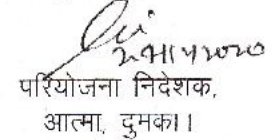 परियोजना निदेशक,
आत्मा, दुमका।।